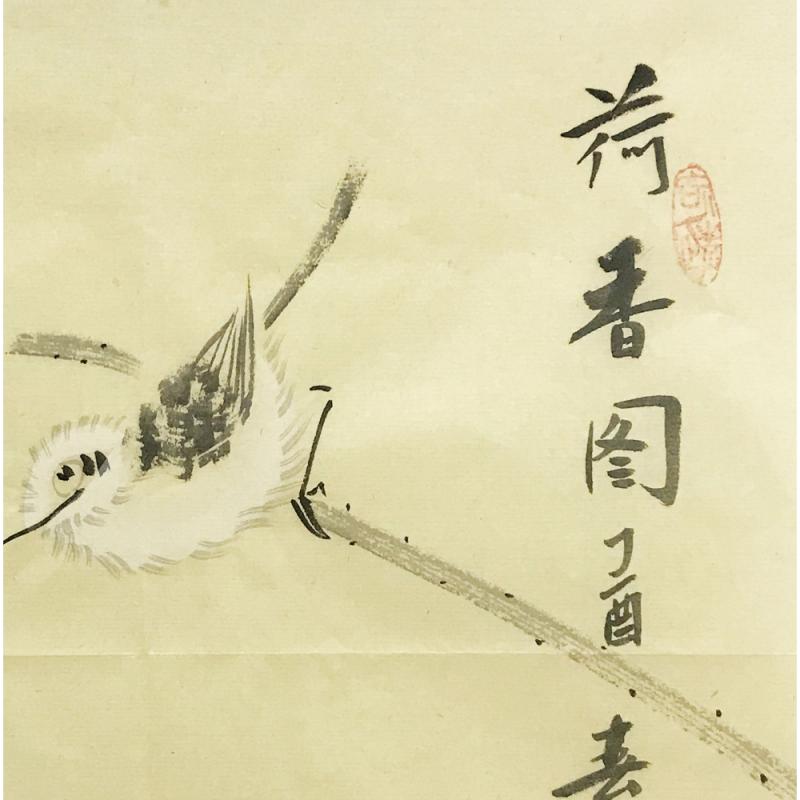 荷香图丁酉春